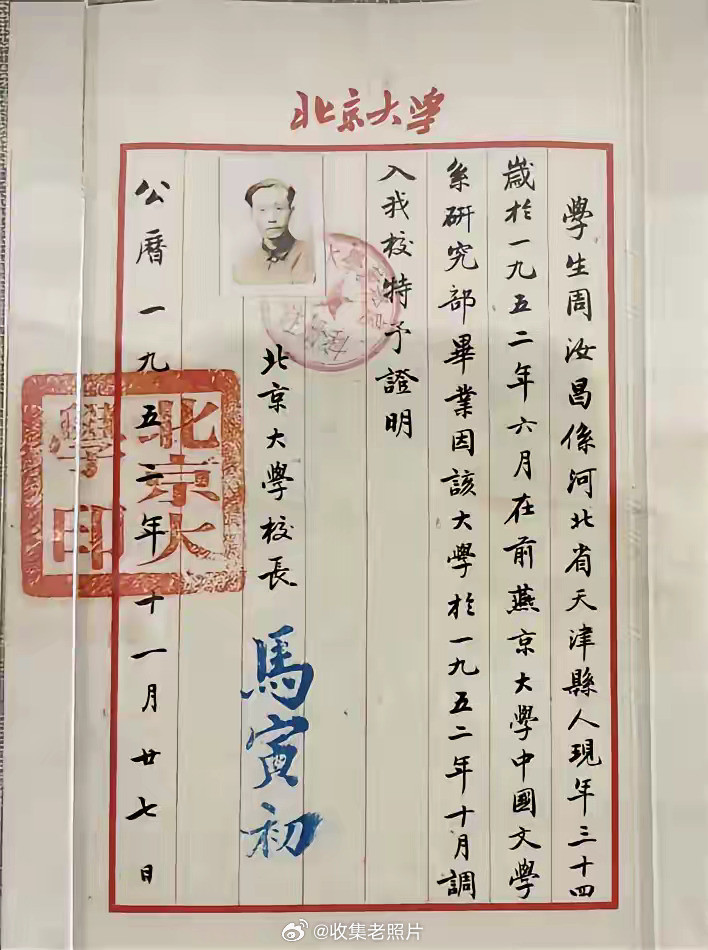 北京大学
學生周汝昌係河北省天津縣人現年三十四
歲於一九五二年六月在前燕京大學中國文學
系研究部畢業因該大學於一九五二年十月調
入我校特予證明
北京大學校長 馬寅初
公曆一九五二年十一月廿七日
北京大
學印
@收集老照片